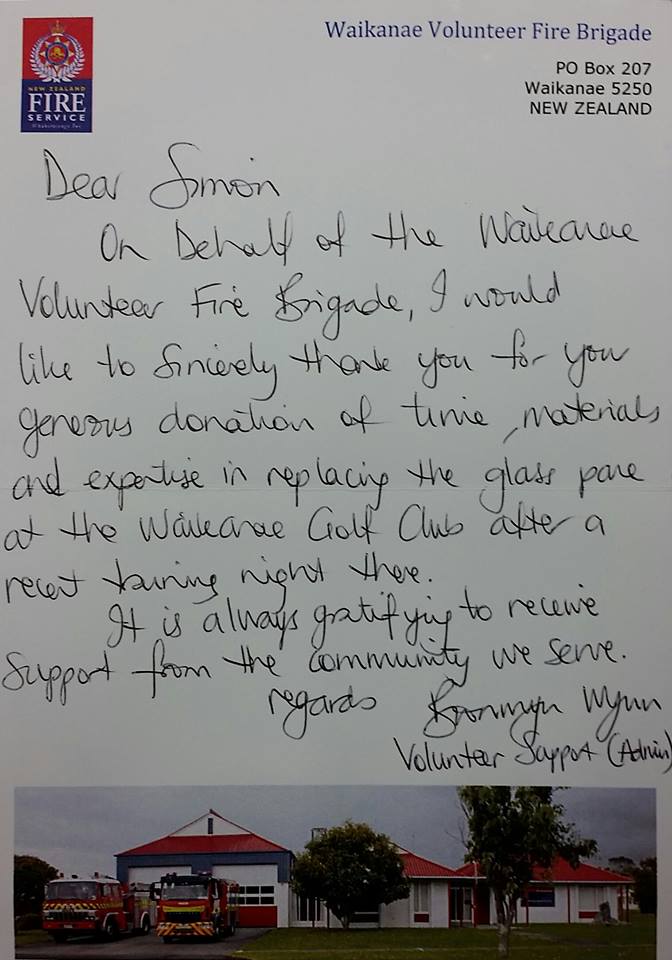 Waikanae Volunteer Fire Brigade
PO Box 207
Waikanae 5250
NEW ZEALAND
NEW ZEALAND
FIRE
SERVICE
Whakaratonga Iwi
Dear Simon
On Behalf of the Waikanae
Volunteer Fire Brigade, I would
like to sincerely thank you for you
generous donation of time, materials
and expertise in replacing the glass pane
at the Waikanae Golf Club after a
recent training night there.
It is always gratifying to receive
support from the community we serve.
regards Bronwyn Wynn
Volunteer Support (Admin)